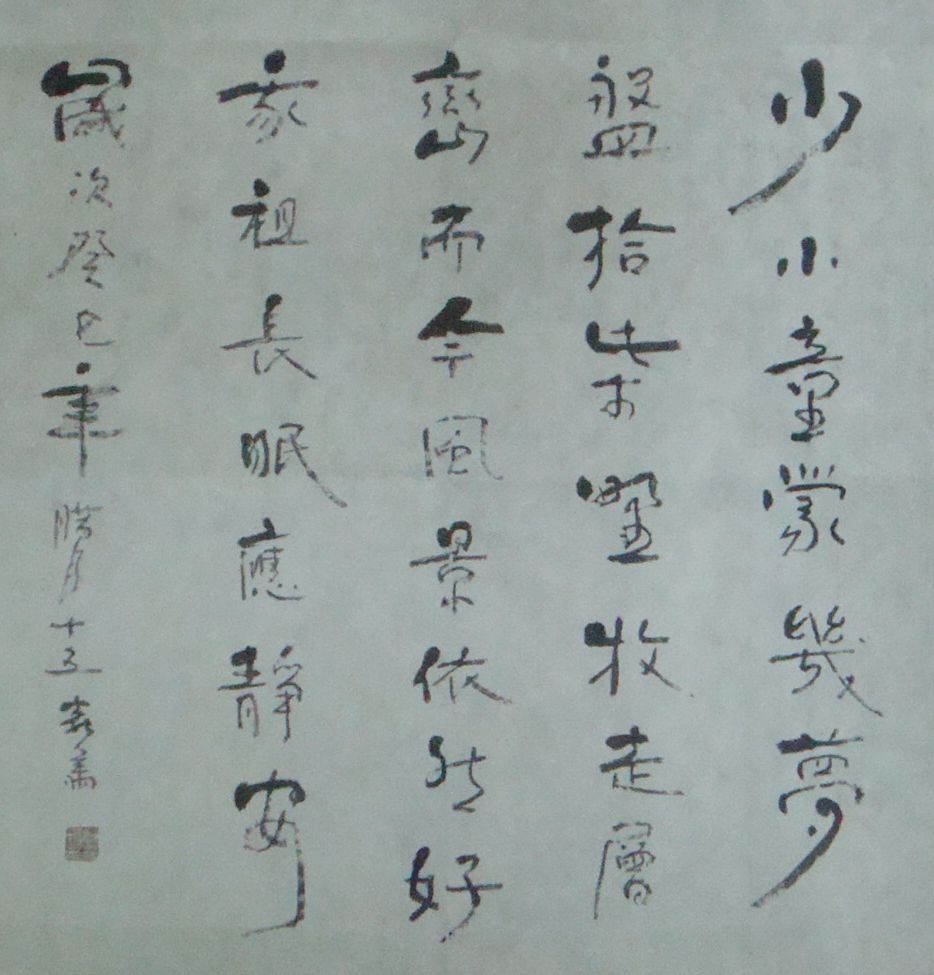 少小童蒙幾夢
盤拾柴野牧走層
巒而今風景依然好
家祖長眠應靜安
歲次癸巳年腊月十五